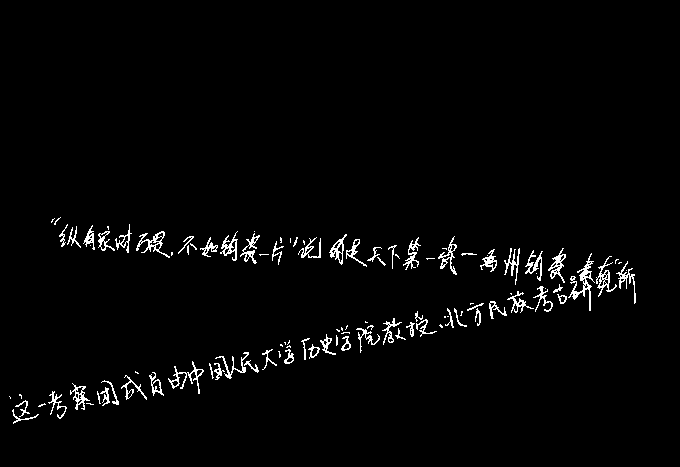 “纵有家财万贯,不如钧瓷一片”说的是天下第一瓷一禹州钧瓷。素有“
这一考察团成员由中国人民大学历史学院教授、北方民族考古研究所